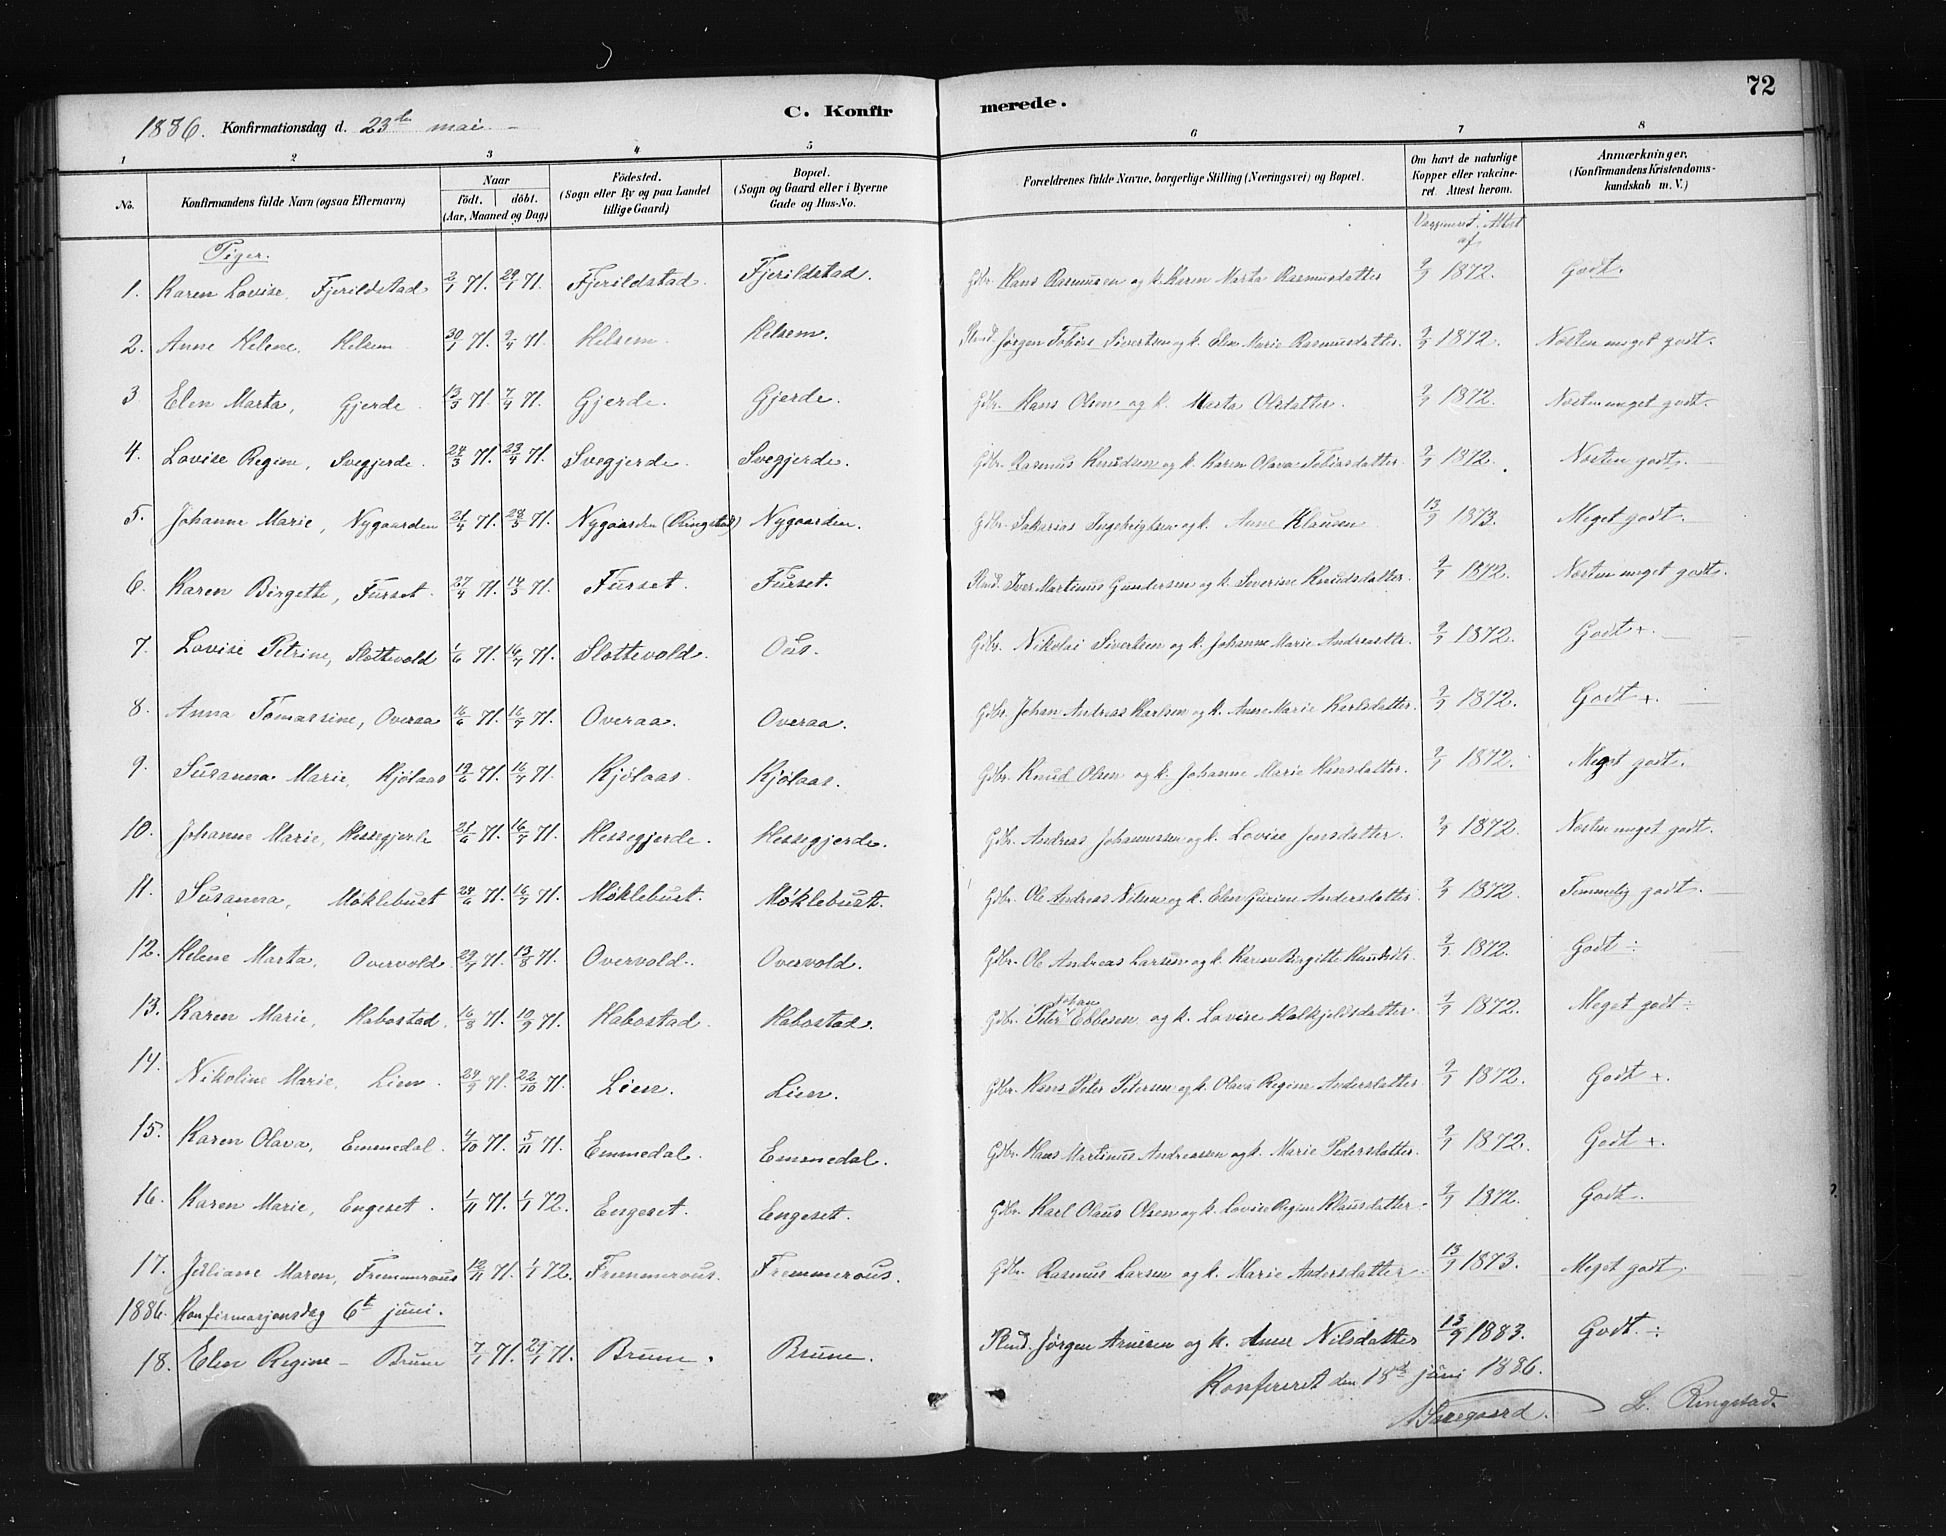 72
C. Konfirmerede.
1886. Konfirmationsdag d. 23de mai.
1 2 3 4 5 6 7 8
No. Konfirmandens fulde Navn (ogsaa Efternavn) Naar født. døbt. (Aar, Maaned og Dag) Fødested. (Sogn eller By og paa Landet tillige Gaard) Bopæl. (Sogn og Gaard eller i Byerne Gade og Hus-No. Forældrenes fulde Navne, borgerlige Stilling (Næringsvei) og Bopæl. Om havt de naturlige Kopper eller vakcineret. Attest herom. Anmærkninger. (Konfirmandens Kristendomskundskab m. V.)
Piger. Attest af
1. Karen Lovise, Fjerildstad 2/1 71. 29/1 71. Fjerildstad. Fjerildstad. Gdbr. Hans Rasmusen og k. Karen Marta Rasmusdatter 9/9 1872. Godt.
2. Anne Helene, Helsem 30/1 71. 9/4 71. Helsem. Helsem. Jørgen Tobias Sivertsen og k. Elen Marie Rasmusdatter. 9/9 1872. Næsten meget godt.
3. Elen Marta, Gjerde 13/3 71. 7/4 71. Gjerde. Gjerde. Gdbr. Hans Olsen og k. Marta Olsdatter. 9/9 1872. Næsten meget godt.
4. Lovise Regine, Svegjerde. 24/3 71. 23/4 71. Svegjerde. Svegjerde. Gdbr. Rasmus Knudsen og k. Karen Olava Tobiasdatter. 9/9 1872. Næsten godt.
5. Johanne Marie, Nygaarden 21/4 71. 28/5 71. Nygaarden (Ringstad) Nygaarden. Gdbr. Sakarias Ingebrigtsen og k. Anne Klausen 13/9 1873. Meget godt.
6. Karen Birgette, Furset. 27/4 71. 14/5 71. Furset. Furset. Iver Martinus Gundersen og k. Severine Knudsdatter. 9/9 1872. Næsten meget godt.
7. Lovise Petrine, Slottevold 1/6 71. 16/7 71. Slottevold. Ous. Gdbr. Nikolai Sivertsen og k. Johanne Marie Andreasdtr. 9/9 1872. Godt +.
8. Anna Tomassine, Overaa 16/6 71. 16/7 71. Overaa. Overaa. Gdbr. Johan Andreas Karlsen og k. Anne Marie Karlsdatter. 9/9 1872. Godt +.
9. Susanna Marie, Kjølaas 19/6 71. 16/7 71. Kjølaas. Kjølaas. Gdbr. Knud Olsen og k. Johanne Marie Hansdatter. 9/9 1872. Meget godt.
10. Johanne Marie, Hessegjerde 21/6 71. 16/7 71. Hessegjerde. Hessegjerde. Gdbr. Andreas Johannessen og k. Lovise Jensdatter. 9/9 1872. Næsten meget godt.
11. Susanna, Møklebust 24/6 71. 16/7 71. Møklebust. Møklebust. Gdbr. Ole Andreas Nilsen og k. Elen Gurine Andersdatter. 9/9 1872. Temmelig godt.
12. Helene Marta, Overvold. 29/7 71. 13/8 71. Overvold. Overvold. Gdbr. Ole Andreas Larsen og k. Karen Birgitte 9/9 1872. Godt ÷
13. Karen Marie, Habostad. 16/8 71. 10/9 71. Habostad. Habostad. Gdbr. Peter Johan Ebbesen og k. Lovise Halkjeldsdatter. 9/9 1872. Meget godt ÷
14. Nikoline Marie, Lien. 24/9 71. 22/10 71. Lien. Lien. Gdbr. Hans Peter Petersen og k. Olava Regine Andersdatter 9/9 1872. Godt +.
15. Karen Olava, Emmedal. 4/10 71. 5/11 71. Emmedal. Emmedal. Gdbr. Hans Martinus Andreassen og k. Marie Pedersdatter. 9/9 1872. Godt +.
16. Karen Marie, Engeset. 1/11 71. 1/1 72. Engeset. Engeset. Gdbr. Karl Olaus Olsen og k. Lovise Regine Klausdatter. 9/9 1872. Godt.
17. Juliane Maren, Fremmerous 12/11 71. 1/1 72. Fremmerous. Fremmerous. Gdbr. Rasmus Larsen og k. Marie Andersdatter. 13/9 1873. Meget godt.
1886. Konfirmasjonsdag 6t juni.
18. Elen Regine - Brune 7/1 71. 29/1 71. Brune. Brune. Jørgen Arnesen og k. Anne Nilsdatter 13/9 1883. Godt ÷
Konfereret den 18d juni 1886.
L. Ringstad.